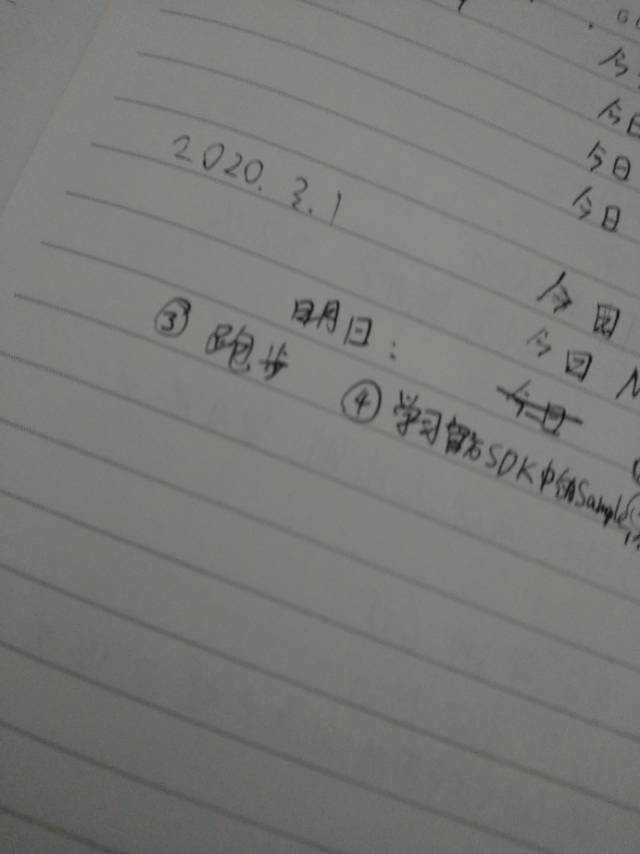 今日
今日
今日
2020.3.1
今日
今日
明日:
今日
③ 跑步 ④ 学习官方SDK中的Sample